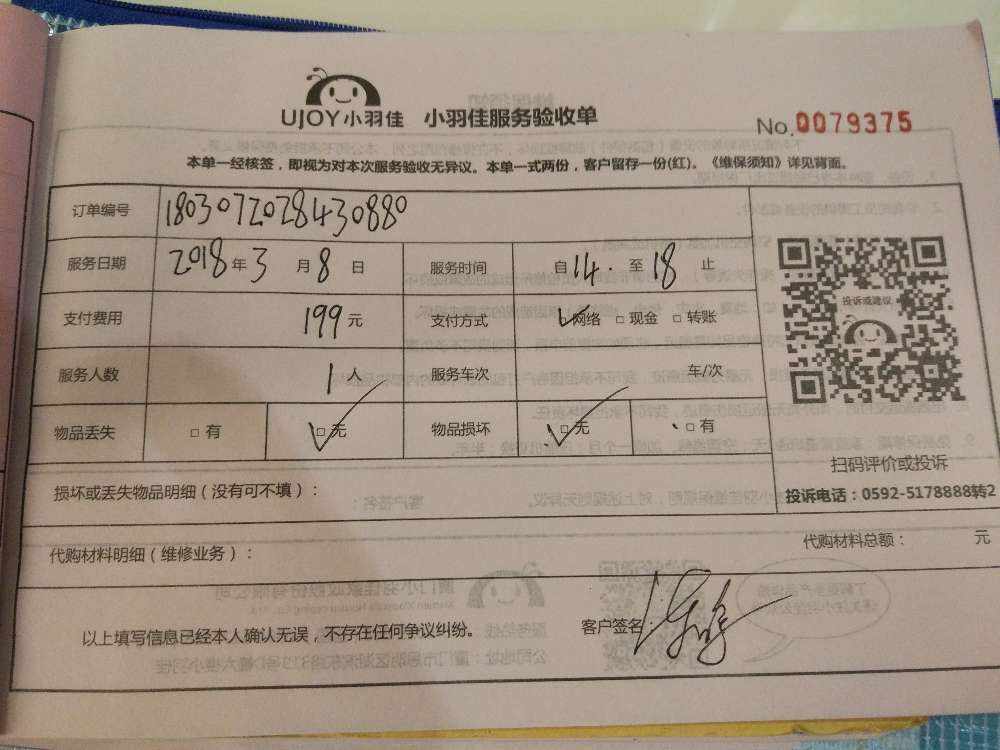 UJOY小羽佳 小羽佳服务验收单 No.0079375
本单一经核签，即视为对本次服务验收无异议。本单一式两份，客户留存一份(红)。《维保须知》详见背面。
订单编号 1803072028430880
服务日期 2018年3月8日 服务时间 自14.至18止
投诉或建议
支付费用 199元 支付方式 ☑网络 □现金 □转账
服务人数 1人 服务车次 车/次
物品丢失 □有 ☑无 物品损坏 ☑无 □有
扫码评价或投诉
损坏或丢失物品明细（没有可不填）： 投诉电话：0592-5178888转2
代购材料明细（维修业务）： 代购材料总额： 元
以上填写信息已经本人确认无误，不存在任何争议纠纷。 客户签名：